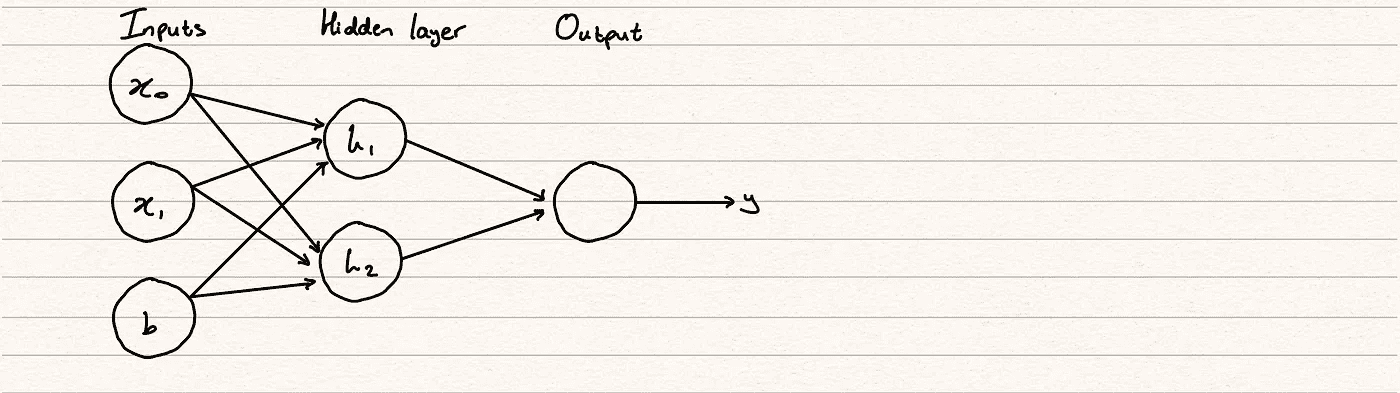 Inputs Hidden layer Output
x₀
h₁
x₁
y
h₂
b